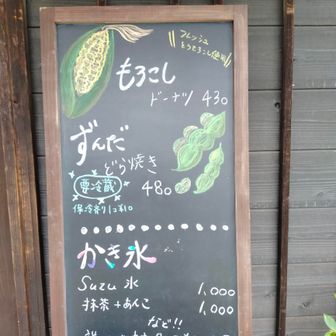 フレッシュ
とうもろこし使用
もろこし
ドーナツ 430
ずんだ
どら焼き
要冷蔵 480
かき氷
Suzu 氷 1,000
抹茶+あんこ 1,000
など!!